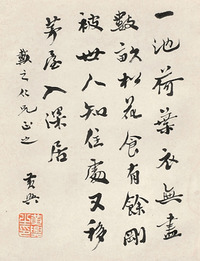 一池荷葉衣無盡
數畝松花食有餘剛
被世人知住處又移
茅屋入深居
之仁兄正之
黃興